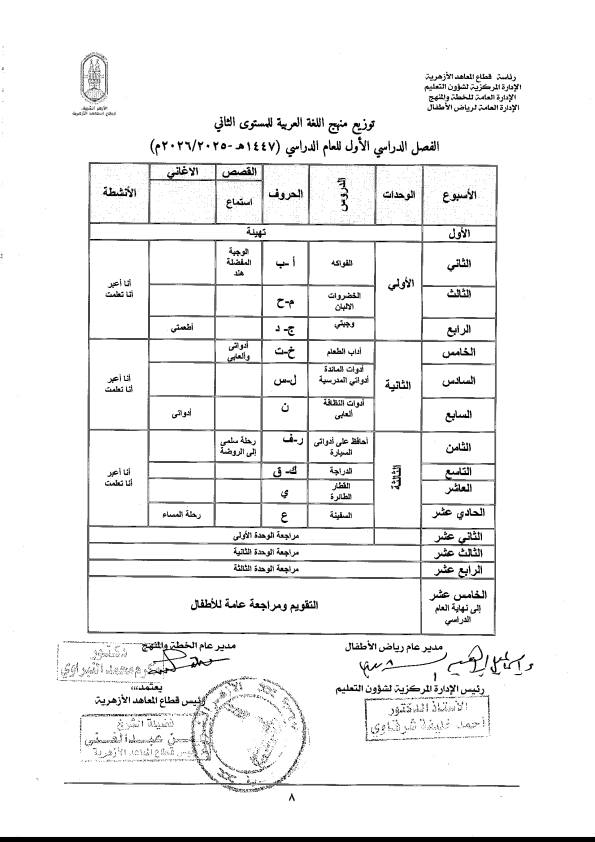 رئاسة قطاع المعاهد الأزهرية
الإدارة المركزية لشؤون التعليم
الإدارة العامة للخطة والمنهج
الإدارة العامة لرياض الأطفال
الأزهر الشريف
قطاع المعاهد الأزهرية
توزيع منهج اللغة العربية للمستوى الثاني
الفصل الدراسي الأول للعام الدراسي (١٤٤٧هـ -٢٠٢٦/٢٠٢٥م)
الأسبوع الوحدات الدروس الحروف القصص الاغاني الأنشطة
استماع
الأول تهيئة
الثاني الأولي الفواكه أ -ب الوجبة المفضلة هند أنا أعبر أنا تعلمت
الثالث الخضروات الالبان م-ح
الرابع وجبتي ج- د أطعمتي
الخامس الثانية آداب الطعام خ-ت أدواتى وألعابي أنا أعبر أنا تعلمت
السادس أدوات المائدة أدواتي المدرسية ل-س
السابع أدوات النظافة ألعابى ن أدواتى
الثامن الثالثة أحافظ على أدواتى السيارة ر-ف رحلة سلمى إلى الروضة أنا أعبر أنا تعلمت
التاسع الدراجة ك- ق
العاشر القطار الطائرة ي
الحادي عشر السفينة ع رحلة المساء
الثاني عشر مراجعة الوحدة الأولى
الثالث عشر مراجعة الوحدة الثانية
الرابع عشر مراجعة الوحدة الثالثة
الخامس عشر إلى نهاية العام الدراسي التقويم ومراجعة عامة للأطفال
مدير عام رياض الأطفال
مدير عام الخطة والمنهج
دكتور
محمد
رئيس الإدارة المركزية لشؤون التعليم
الأستاذ الدكتور
أحمد خليفة شرقاوي
يعتمد،،،
رئيس قطاع المعاهد الأزهرية
فضيلة الشيخ
عبد الغني
رئيس قطاع المعاهد الأزهرية
٨